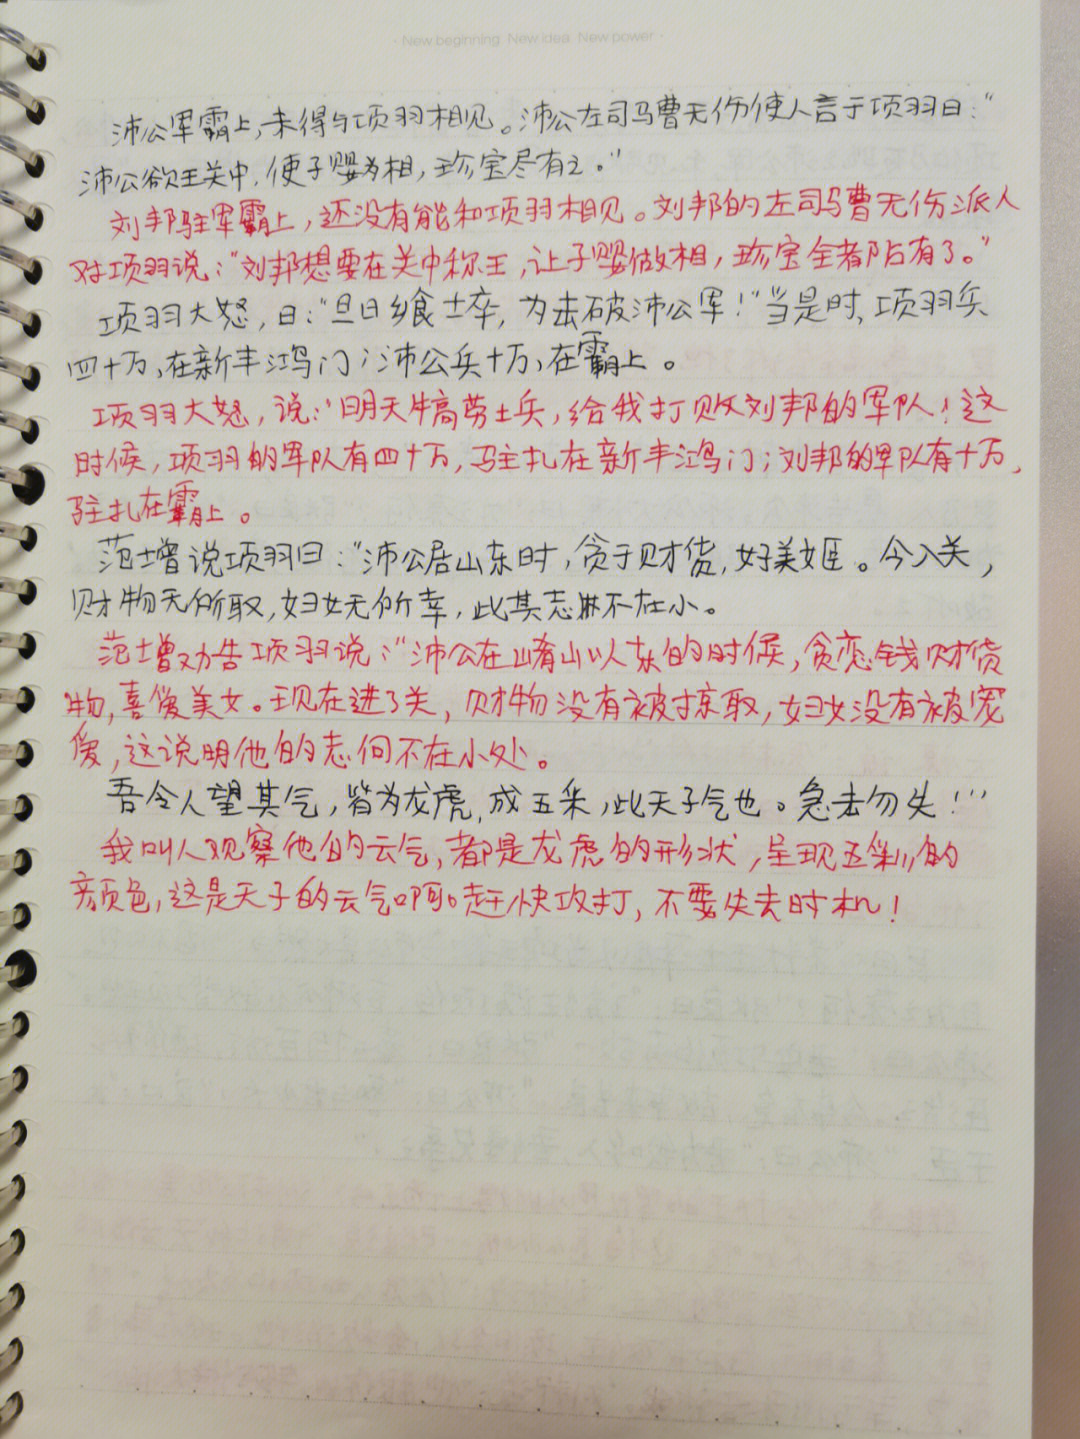 · New beginning New idea New power ·
沛公军霸上,未得与项羽相见。沛公左司马曹无伤使人言于项羽曰:“
沛公欲王关中,使子婴为相,珍宝尽有之。”
刘邦驻军霸上,还没有能和项羽相见。刘邦的左司马曹无伤派人
对项羽说:“刘邦想要在关中称王,让子婴做相,珍宝全都占有了。”
项羽大怒,曰:“旦日飨士卒,为击破沛公军!”当是时,项羽兵
四十万,在新丰鸿门;沛公兵十万,在霸上。
项羽大怒,说:“明天犒劳士兵,给我打败刘邦的军队!这
时候,项羽的军队有四十万,驻扎在新丰鸿门;刘邦的军队有十万,
驻扎在霸上。
范增说项羽曰:“沛公居山东时,贪于财货,好美姬。今入关,
财物无所取,妇女无所幸,此其志不在小。
范增劝告项羽说:“沛公在崤山以东的时候,贪恋钱财货
物,喜爱美女。现在进了关,财物没有被掠取,妇女没有被宠
爱,这说明他的志向不在小处。
吾令人望其气,皆为龙虎,成五采,此天子气也。急击勿失!”
我叫人观察他的云气,都是龙虎的形状,呈现五彩的
颜色,这是天子的云气啊。赶快攻打,不要失去时机!